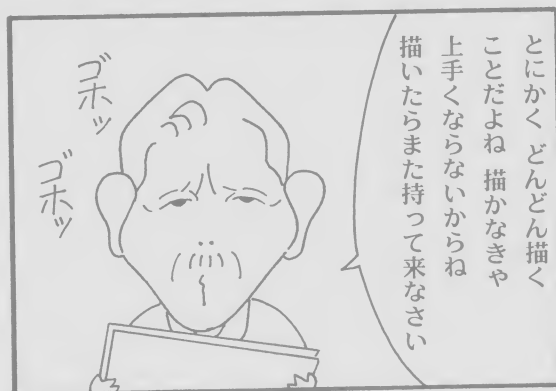 とにかく どんどん描く
ことだよね 描かなきゃ
上手くならないからね
描いたらまた持って来なさい
ゴホッ
ゴホッ